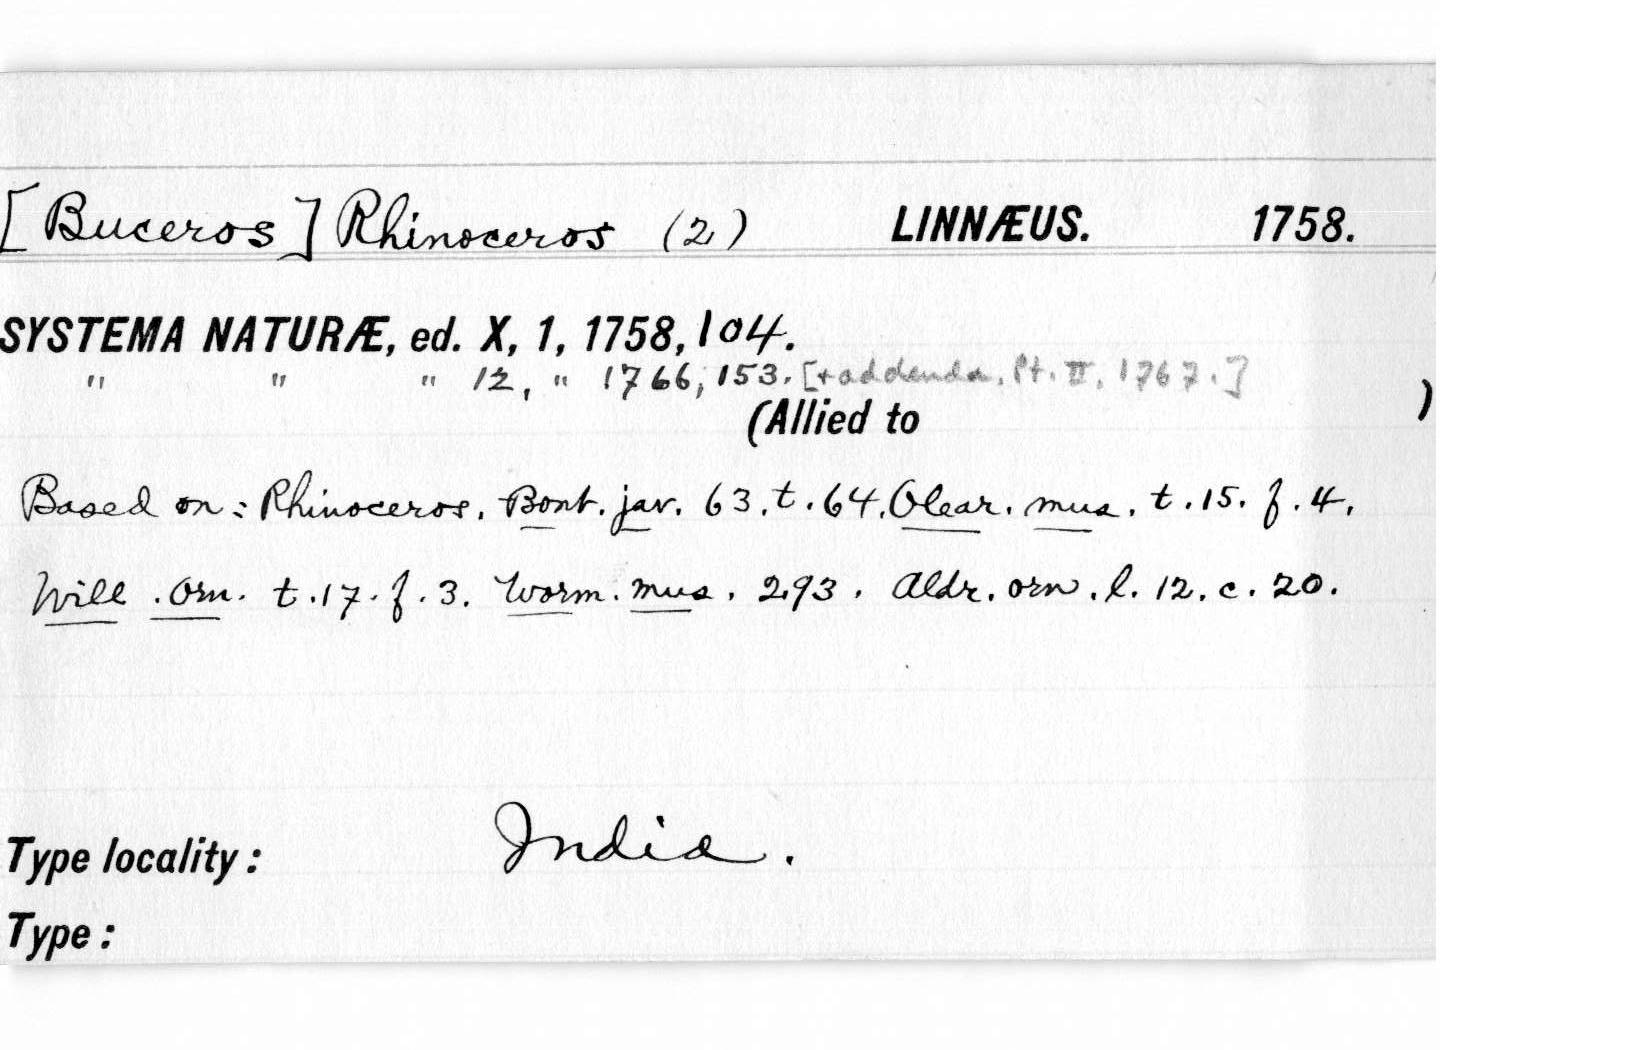 [Buceros] Rhinoceros (2) LINNÆUS. 1758.
SYSTEMA NATURÆ, ed. X, 1, 1758, 104.
" " " 12, " 1766, 153. [+addenda, Pt. II, 1767.]
(Allied to )
Based on: Rhinoceros. Bont. jav. 63. t. 64. Olear. mus. t. 15. f. 4.
Will. orn. t. 17. f. 3. Worm. mus. 293. Aldr. orn. l. 12. c. 20.
Type locality: India.
Type: